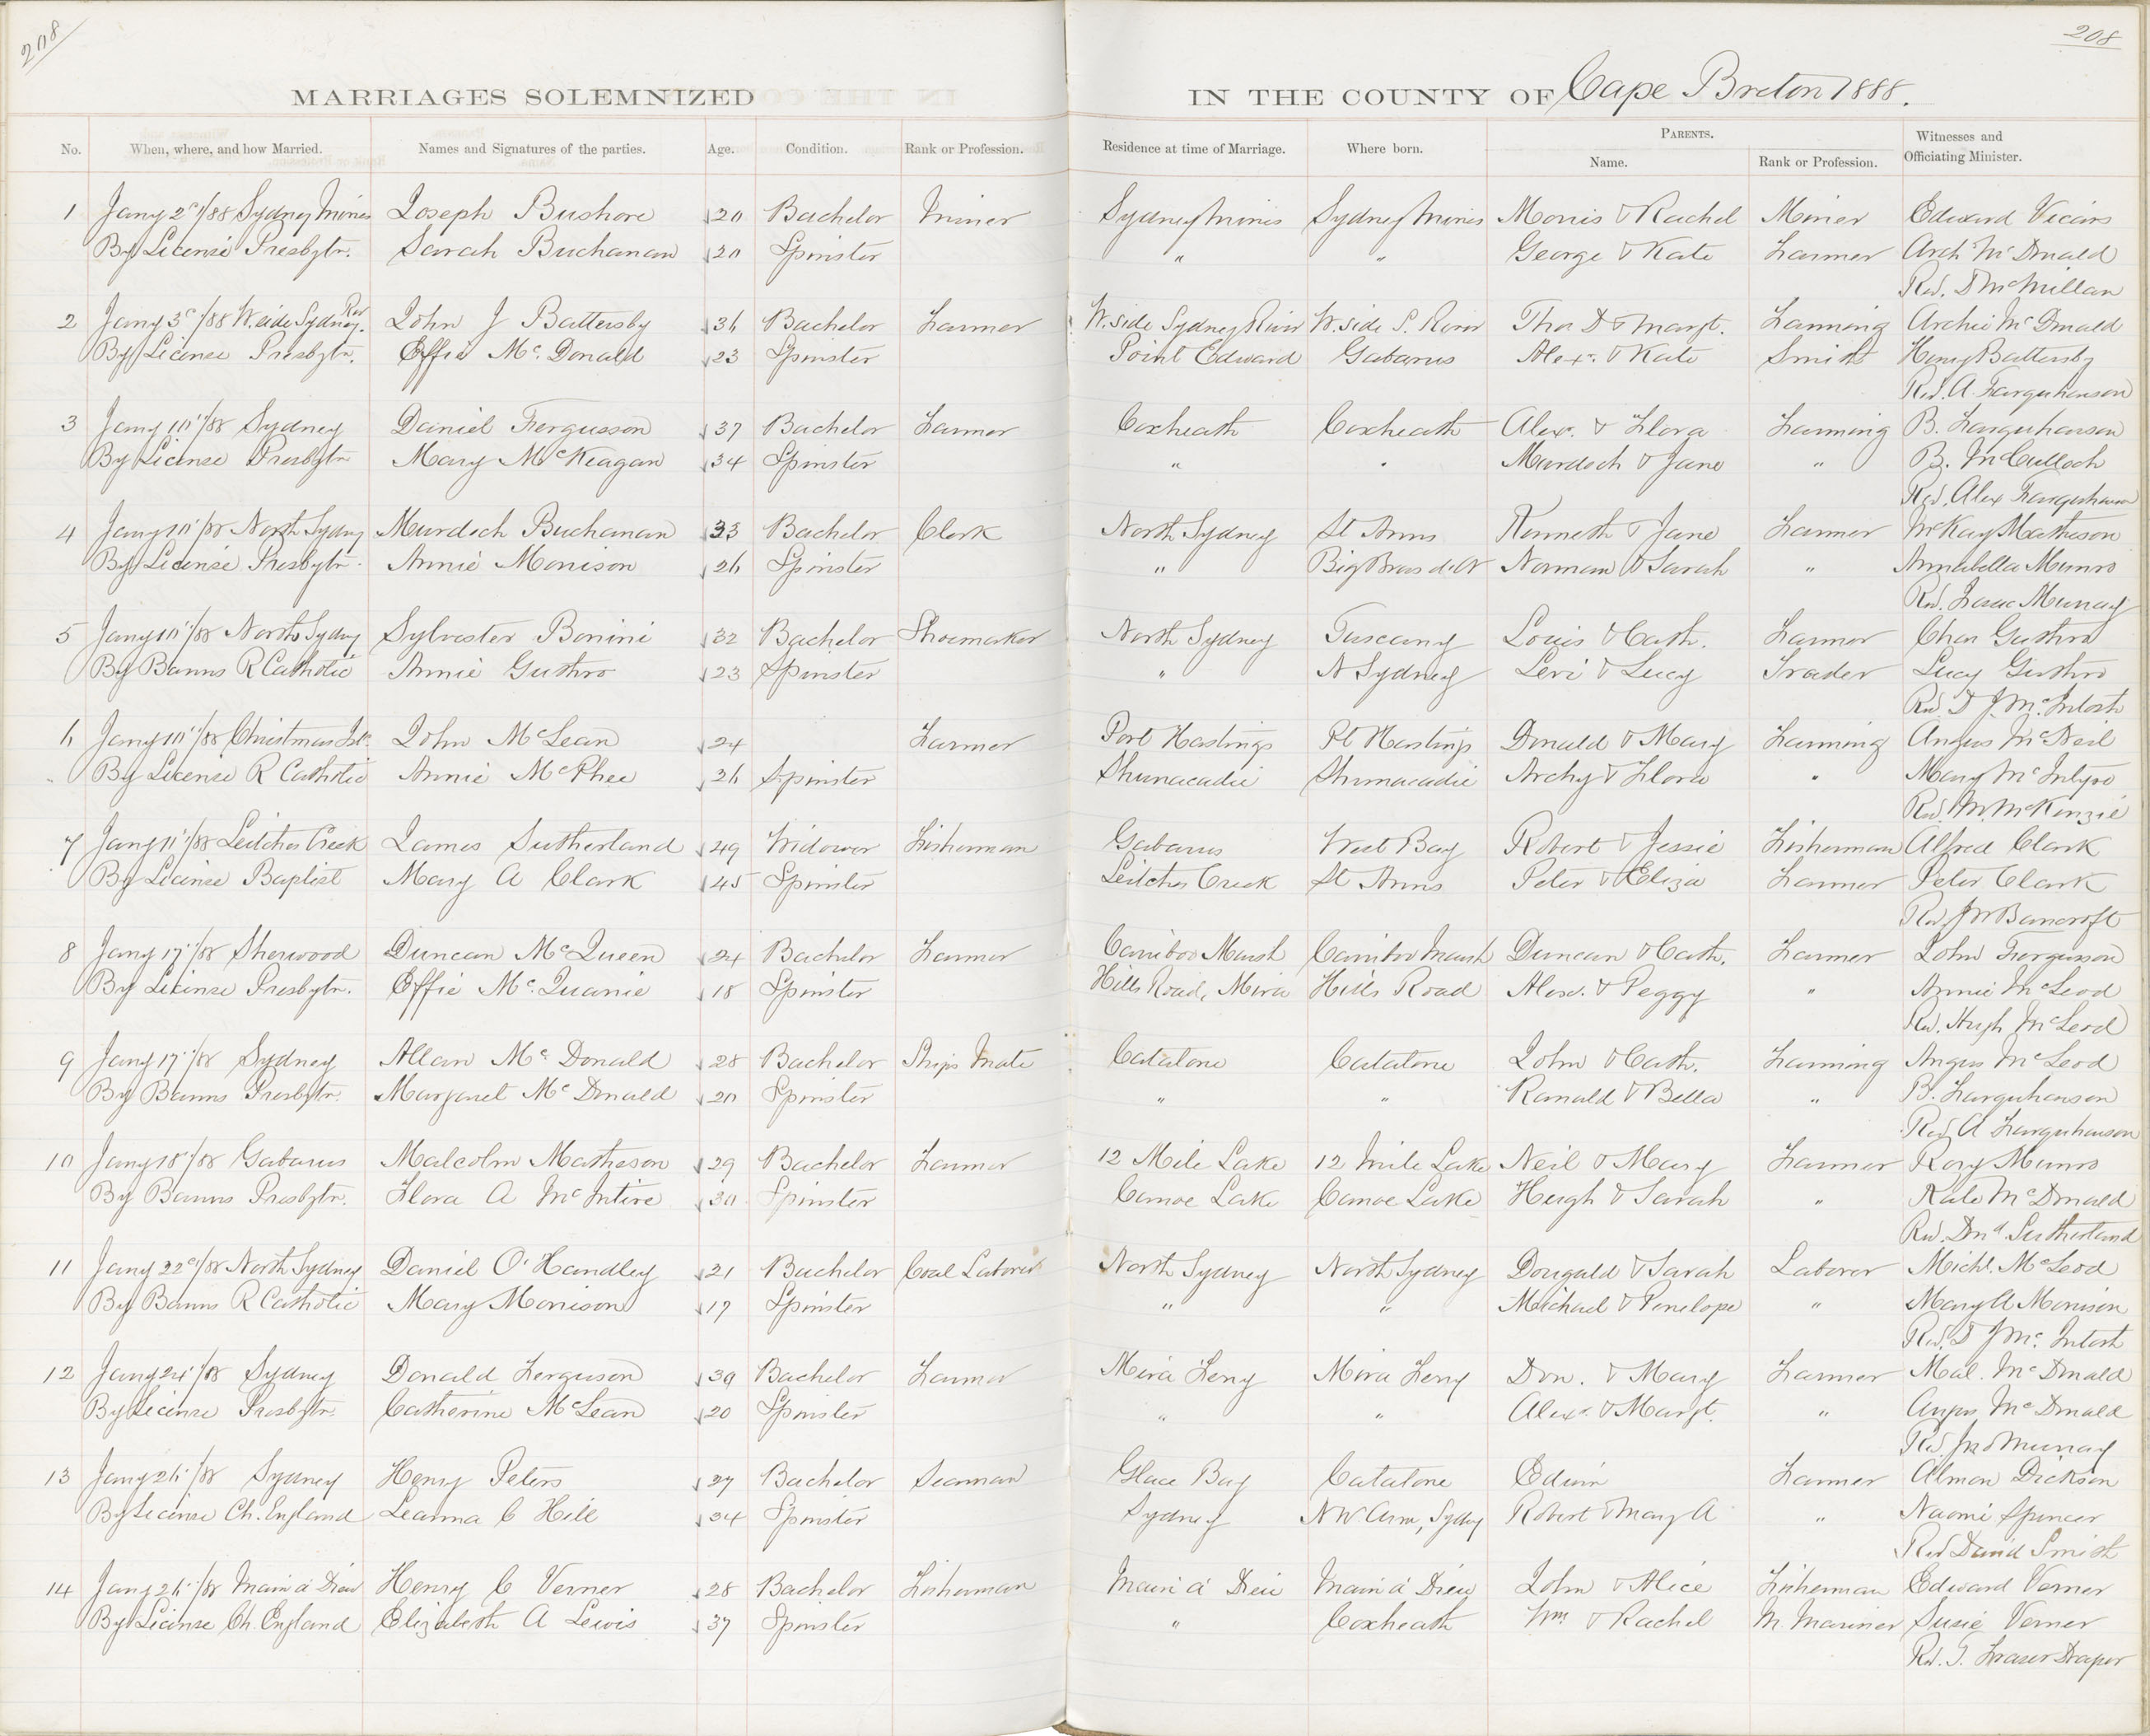 208
208
MARRIAGES SOLEMNIZED
IN THE COUNTY OF Cape Breton 1888.
No. When, where, and how Married. Names and Signatures of the parties. Age. Condition. Rank or Profession. Residence at time of Marriage. Where born. PARENTS. Name. Rank or Profession. Witnesses and Officiating Minister.
1 Jany 2d/88 Sydney Mines Joseph Bushore 20 Bachelor Miner Sydney Mines Sydney Mines Morris & Rachel Miner Edward Vicars
By License Presbytr. Sarah Buchanan 20 Spinster " " George & Kate Farmer Arch McDonald
Rev. D McMillan
2 Jany 3d/88 W. side Sydney Rivr John J Battersby 36 Bachelor Farmer W. side Sydney River W. side S. River Thos D & Margt. Farming Archie McDonald
By License Presbytr. Effie Mc. Donald 23 Spinster Point Edward Gabarus Alexr. & Kate Smith Henry Battersby
Rev. A Farquharson
3 Jany 10/88 Sydney Daniel Fergusson 37 Bachelor Farmer Coxheath Coxheath Alexr. & Flora Farming B. Farquharson
By License Presbytr Mary McKeagan 34 Spinster " " Murdoch & Jane " B. McCulloch
Rev. Alex Farquharson
4 Jany 10/88 North Sydney Murdoch Buchanan 33 Bachelor Clerk North Sydney St Anns Kenneth & Jane Farmer McKay Matheson
By License Presbytr Annie Morrison 26 Spinster " Big Bras d'Or Norman & Sarah " Annabella Munro
Rev. Isaac Murray
5 Jany 10/88 North Sydney Sylvester Bonini 32 Bachelor Shoemaker North Sydney Tuscany Louis & Cath. Farmer Chas Gusthro
By Banns R Catholic Annie Gusthro 23 Spinster " N Sydney Levi & Lucy Trader Lucy Gusthro
Rev D J. McIntosh
6 Jany 10/88 Christmas Isl. John McLean 24 Farmer Port Hastings Pt Hastings Donald & Mary Farming Angus McNeil
By License R Catholic Annie McPhee 26 Spinster Shunacadie Shunacadie Archy & Flora " Mary McIntyre
Rev. M. McKenzie
7 Jany 11/88 Leitches Creek James Sutherland 49 Widower Fisherman Gabarus West Bay Robert & Jessie Fisherman Alfred Clark
By License Baptist Mary A Clark 45 Spinster Leitches Creek St Anns Peter & Eliza Farmer Peter Clark
Rev JW Bancroft
8 Jany 17/88 Sherwood Duncan McQueen 24 Bachelor Farmer Cariboo Marsh Cariboo Marsh Duncan & Cath. Farmer John Fergusson
By License Presbytr. Effie Mc.Quanie 18 Spinster Hills Road, Mira Hills Road Alexr. & Peggy " Annie McLeod
Rev. Hugh McLeod
9 Jany 17/88 Sydney Allan Mc Donald 28 Bachelor Ships Mate Catalone Catalone John & Cath. Farming Angus McLeod
By Banns Presbytr. Margaret Mc Donald 20 Spinster " " Ranald & Bella " B. Farquharson
Rev A Farquharson
10 Jany 18/88 Gabarus Malcolm Matheson 29 Bachelor Farmer 12 Mile Lake 12 Mile Lake Neil & Mary Farmer Rory Munro
By Banns Presbytr. Flora A McIntire 30 Spinster Canoe Lake Canoe Lake Hugh & Sarah " Kate McDonald
Rev. Dnd. Sutherland
11 Jany 22d/88 North Sydney Daniel O'Handley 21 Bachelor Coal Laborer North Sydney North Sydney Dougald & Sarah Laborer Michl. McLeod
By Banns R Catholic Mary Morrison 17 Spinster " " Michael & Penelope " Mary A Morrison
Rev. D J Mc.Intosh
12 Jany 24/88 Sydney Donald Ferguson 39 Bachelor Farmer Mira Ferry Mira Ferry Don. & Mary Farmer Mal. McDonald
By License Presbytr. Catherine McLean 20 Spinster " " Alexr. & Margt. " Angus McDonald
Rev. Jno Murray
13 Jany 26/88 Sydney Henry Peters 27 Bachelor Seaman Glace Bay Catalone Edwin Farmer Almon Dickson
By License Ch. England Leanna C Hill 34 Spinster Sydney NW Arm, Sydny Robert & Mary A " Naomi Spencer
Rev David Smith
14 Jany 26/88 Main á Dieu Henry C Verner 28 Bachelor Fisherman Main á Dieu Main á Dieu John & Alice Fisherman Edward Verner
By License Ch. England Elizabeth A Lewis 37 Spinster " Coxheath Wm & Rachel M. Mariner Susie Verner
Rev. T. Fraser Draper